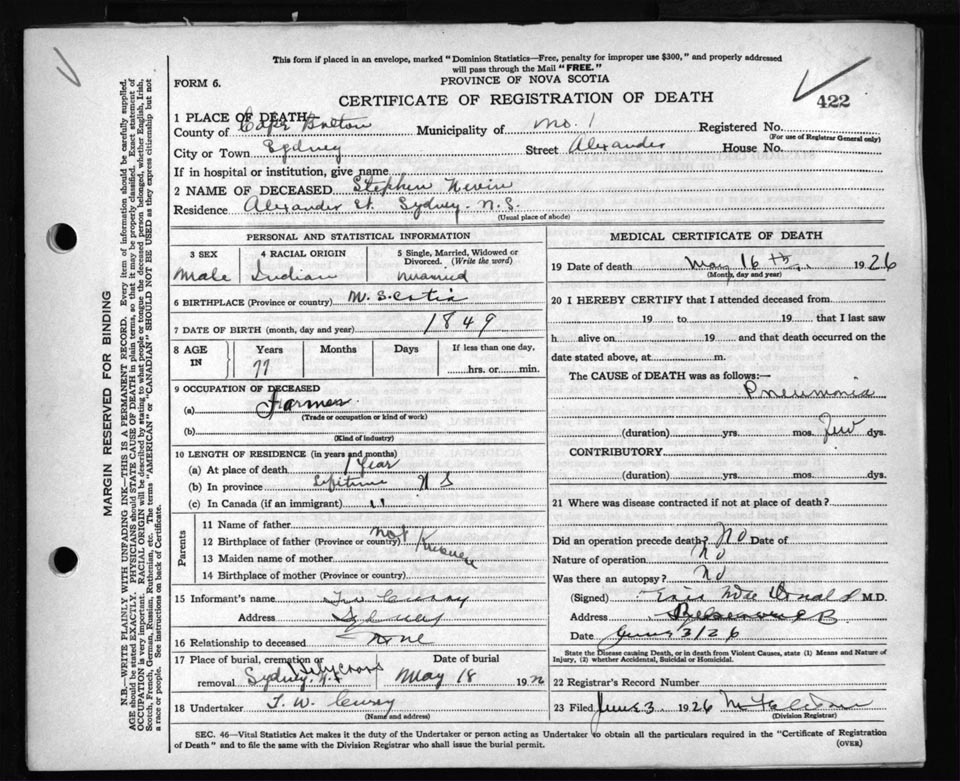 This form if placed in an envelope, marked "Dominion Statistics—Free, penalty for improper use $300," and properly addressed
will pass through the Mail "FREE."
FORM 6.
PROVINCE OF NOVA SCOTIA
CERTIFICATE OF REGISTRATION OF DEATH
422
1 PLACE OF DEATH
County of Cape Breton Municipality of No. 1 Registered No.
(For use of Registrar General only)
City or Town Sydney Street Alexander House No.
If in hospital or institution, give name
2 NAME OF DECEASED Stephen Nevin
Residence Alexander St. Sydney. N.S.
(Usual place of abode)
PERSONAL AND STATISTICAL INFORMATION
3 SEX
Male
4 RACIAL ORIGIN
Indian
5 Single, Married, Widowed or
Divorced. (Write the word)
Married
6 BIRTHPLACE (Province or country) N. Scotia
7 DATE OF BIRTH (month, day and year) 1849
8 AGE IN
Years Months Days If less than one day,
77 hrs. or min.
9 OCCUPATION OF DECEASED
(a) Farmer
(Trade or occupation or kind of work)
(b)
(Kind of industry)
10 LENGTH OF RESIDENCE (in years and months)
(a) At place of death 1 Year
(b) In province Lifetime N S
(c) In Canada (if an immigrant) "
Parents
11 Name of father
12 Birthplace of father (Province or country) not Known
13 Maiden name of mother
14 Birthplace of mother (Province or country)
15 Informant's name T W Curry
Address Sydney
16 Relationship to deceased None
17 Place of burial, cremation or Date of burial
removal Sydney, N.S. Holy Cross May 18 192
18 Undertaker T. W. Curry
(Name and address)
MEDICAL CERTIFICATE OF DEATH
19 Date of death May 16th 1926
(Month, day and year)
20 I HEREBY CERTIFY that I attended deceased from
19 to 19 that I last saw
h alive on 19 and that death occurred on the
date stated above, at m.
The CAUSE of DEATH was as follows:—
Pneumonia
(duration) yrs. mos. few dys.
CONTRIBUTORY
(duration) yrs. mos. dys.
21 Where was disease contracted if not at place of death?
Did an operation precede death? No Date of
Nature of operation No
Was there an autopsy? No
(Signed) Eric MacDonald M.D.
Address
Date June 3/26
State the Disease causing Death, or in death from Violent Causes, state (1) Means and Nature of
Injury, (2) whether Accidental, Suicidal or Homicidal.
22 Registrar's Record Number
23 Filed June 3. 1926
(Division Registrar)
SEC. 46—Vital Statistics Act makes it the duty of the Undertaker or person acting as Undertaker to obtain all the particulars required in the "Certificate of Registration
of Death" and to file the same with the Division Registrar who shall issue the burial permit.
(OVER)
MARGIN RESERVED FOR BINDING
N.B.—WRITE PLAINLY WITH UNFADING INK—THIS IS A PERMANENT RECORD. Every item of information should be carefully supplied.
AGE should be stated EXACTLY. PHYSICIANS should STATE CAUSE OF DEATH in plain terms, so that it may be properly classified. Exact statement of
OCCUPATION is very important. RACIAL ORIGIN will be described by stating to what people or tongue the deceased person belonged, whether English, Irish,
Scotch, French, German, Russian, Ruthenian, etc. The terms "AMERICAN" or "CANADIAN" SHOULD NOT BE USED as they express citizenship but not
a race or people. See instructions on back of Certificate.